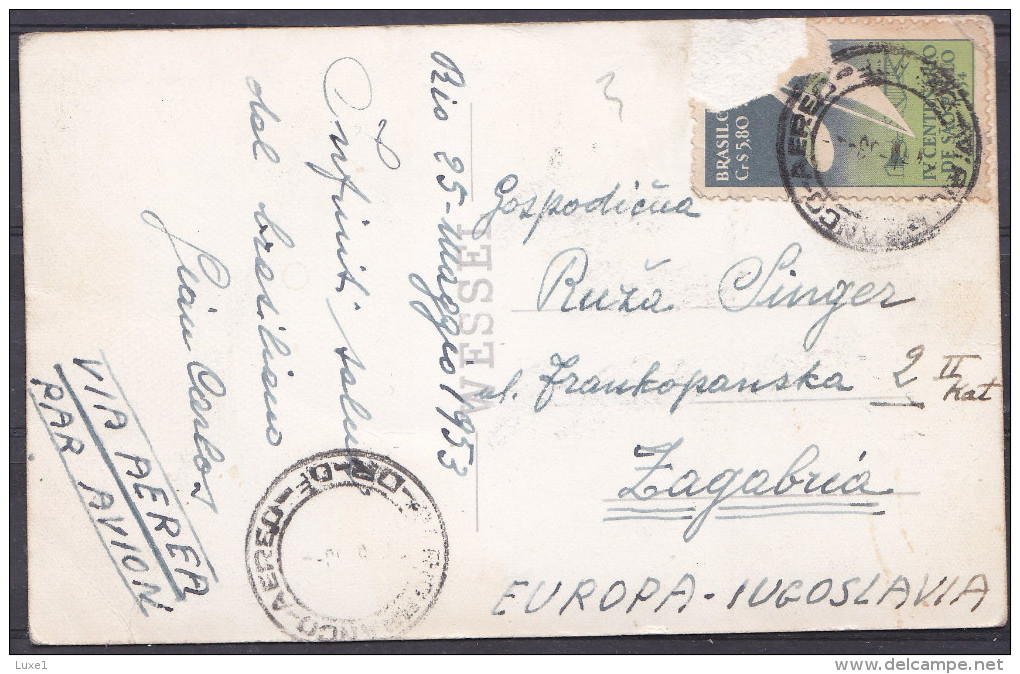 Rio 25-Maggio 1953
Infiniti saluti
dal brasiliano
Gian Carlos
VIA AEREA
PAR AVION
WESSEL
BRASIL
Cr$ 5,80
IV CENTENARIO
DE SÃO PAULO
Gospodična
Ruža Singer
ul. Frankopanska 2 II
Kat
Zagabria
EUROPA-IUGOSLAVIA
Luxe1
www.delcampe.net